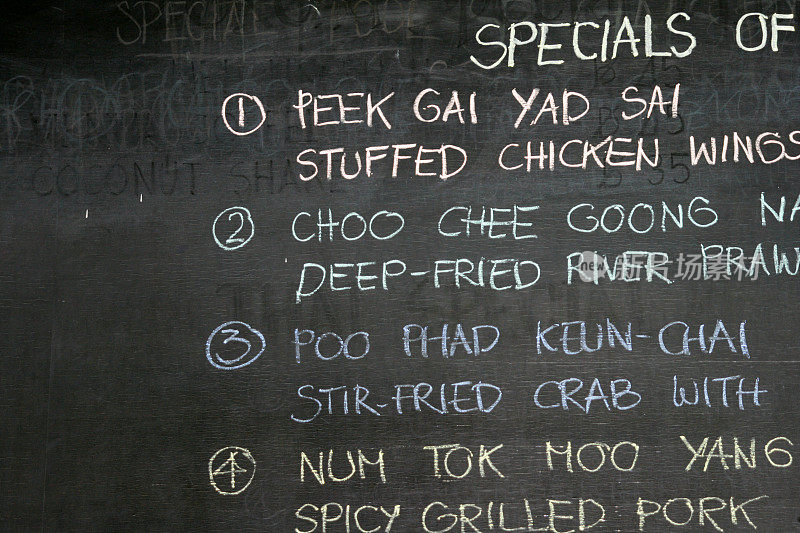 SPECIALS OF
① PEEK GAI YAD SAI
STUFFED CHICKEN WINGS
② CHOO CHEE GOONG NA
DEEP-FRIED RIVER PRAW
③ POO PHAD KEUN-CHAI
STIR-FRIED CRAB WITH
④ NUM TOK MOO YANG
SPICY GRILLED PORK
COCONUT SHAKE B 35
new 新片场素材